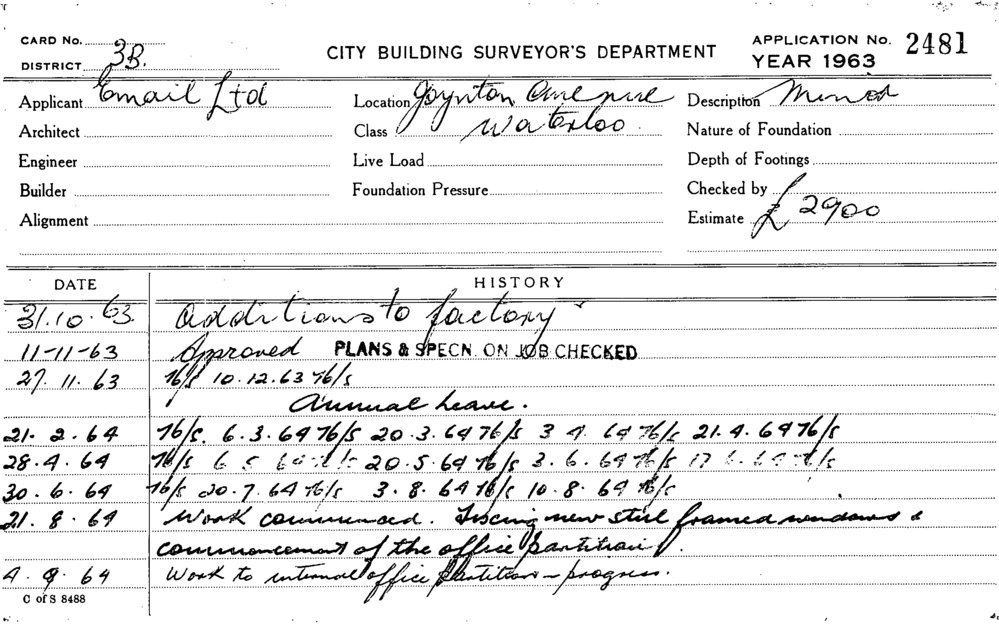 CARD No.
DISTRICT 3B.
CITY BUILDING SURVEYOR'S DEPARTMENT
APPLICATION No. 2481
YEAR 1963
Applicant Email Ltd
Location Joynton Avenue
Description Minor
Architect
Class Waterloo
Nature of Foundation
Engineer
Live Load
Depth of Footings
Builder
Foundation Pressure
Checked by
Alignment
Estimate £ 2900
DATE HISTORY
31.10.63 Additions to factory
11-11-63 Approved PLANS & SPECN. ON JOB CHECKED
27.11.63 N/S 10.12.63 N/S
Annual Leave.
21.2.64 N/S. 6.3.64 N/S 20.3.64 N/S 3.4.64 N/S 21.4.64 N/S
28.4.64 N/S 6.5.64 N/S 20.5.64 N/S 3.6.64 N/S 17.6.64 N/S
30.6.64 N/S 20.7.64 N/S 3.8.64 N/S 10.8.64 N/S
21.8.64 Work commenced. new steel framed windows &
commencement of the office partition.
4.9.64 Work to internal office partition - progress.
C of S 8488